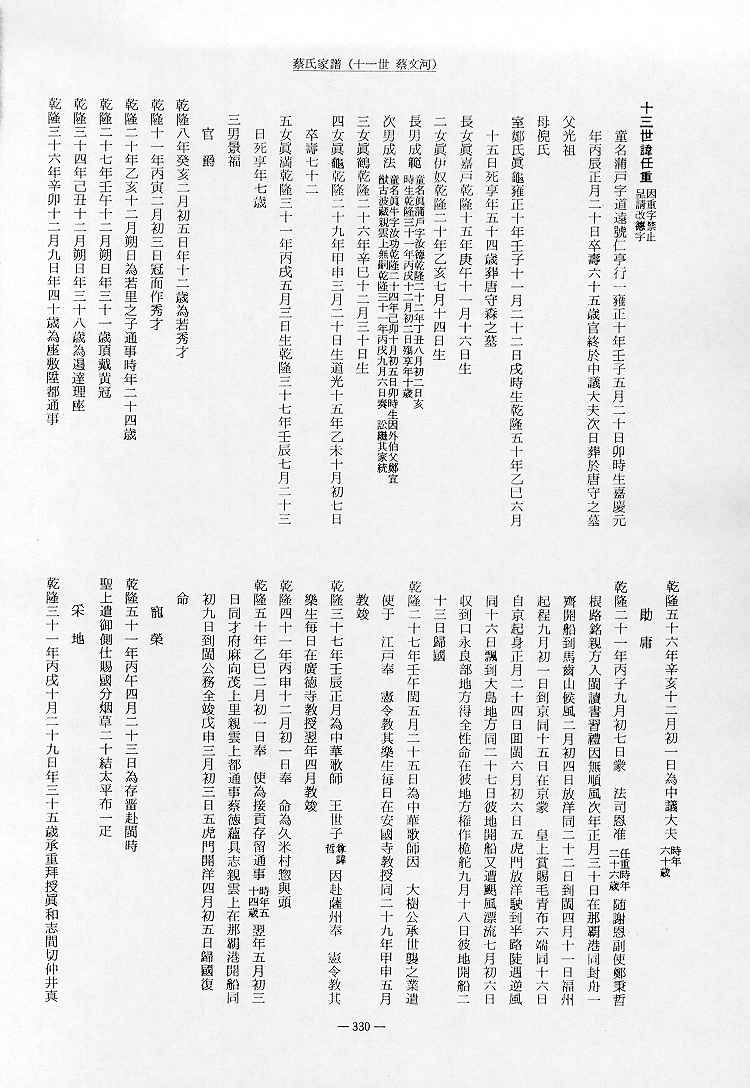 蔡氏家譜（十一世 蔡文河）
十三世諱任重 因重字禁止呈請改德字
童名蒲戸字道遠號仁亭行一雍正十年壬子五月二十日卯時生嘉慶元
年丙辰正月二十日卒壽六十五歳官終於中議大夫次日葬於唐守之墓
父光祖
母倪氏
室鄭氏眞龜雍正十年壬子十一月二十二日戌時生乾隆五十年乙巳六月
十五日死享年五十四歳葬唐守森之墓
長女眞嘉戸乾隆十五年庚午十一月十六日生
二女眞伊奴乾隆二十年乙亥七月十四日生
長男成範 童名眞蒲戸字汝德乾隆二十二年丁丑八月初二日亥時生乾隆三十一年丙戌十二月初二日殤享年十歳
次男成法 童名眞牛字汝功乾隆二十四年己卯十月初五日卯時生因外伯父鄭宜猷古波藏親雲上無嗣乾隆三十一年丙戌九月六日奏 訟繼其家統
三女眞鶴乾隆二十六年辛巳十二月三十日生
四女眞龜乾隆二十九年甲申三月二十日生道光十五年乙未十月初七日
卒壽七十二
五女眞滿乾隆三十一年丙戌五月三日生乾隆三十七年壬辰七月二十三
日死享年七歳
三男景福
官爵
乾隆八年癸亥二月初五日年十二歳為若秀才
乾隆十一年丙寅二月初三日冠而作秀才
乾隆二十年乙亥十二月朔日為若里之子通事時年二十四歳
乾隆二十七年壬午十二月朔日年三十一歳頂戴黃冠
乾隆三十四年己丑十二月朔日年三十八歳為遏達理座
乾隆三十六年辛卯十二月九日年四十歳為座敷陞都通事
乾隆五十六年辛亥十二月初一日為中議大夫 時年六十歳
勛庸
乾隆二十一年丙子九月初七日蒙 法司恩准 任重時年二十六歳 随謝恩副使鄭秉哲
根路銘親方入閩讀書習禮因無順風次年正月三十日在那覇港同封舟一
齊開船到馬齒山候風二月初四日放洋同二十二日到閩四月十一日福州
起程九月初一日到京同十五日在京蒙 皇上賞賜毛青布六端同十六日
自京起身正月二十四日回閩六月初六日五虎門放洋駛到半路陡遇逆風
同十六日飄到大島地方同二十七日彼地開船又遭颶風漂流七月初六日
収到口永良部地方得全性命在彼地方権作桅舵九月十八日彼地開船二
十三日歸國
乾隆二十七年壬午閏五月二十五日為中華歌師因 大樹公承世襲之業遣
使于 江戸奉 憲令教其樂生毎日在安國寺教授同二十九年甲申五月
教竣
乾隆三十七年壬辰正月為中華歌師 王世子 尊諱哲 因赴薩州奉 憲令教其
樂生毎日在廣德寺教授翌年四月教竣
乾隆四十一年丙申十二月初一日奉 命為久米村惣與頭
乾隆五十年乙巳二月初一日奉 使為接貢存留通事 時年五十四歳 翌年五月初三
日同才府麻向茂上里親雲上都通事蔡德蘊具志親雲上在那覇港開船同
初九日到閩公務全竣戊申三月初三日五虎門開洋四月初五日歸國復
命
寵榮
乾隆五十一年丙午四月二十三日為存畱赴閩時
聖上遣御側仕賜國分烟草二十結太平布一疋
采地
乾隆三十一年丙戌十月二十九日年三十五歳承重拜授眞和志間切仲井真
— 330 —